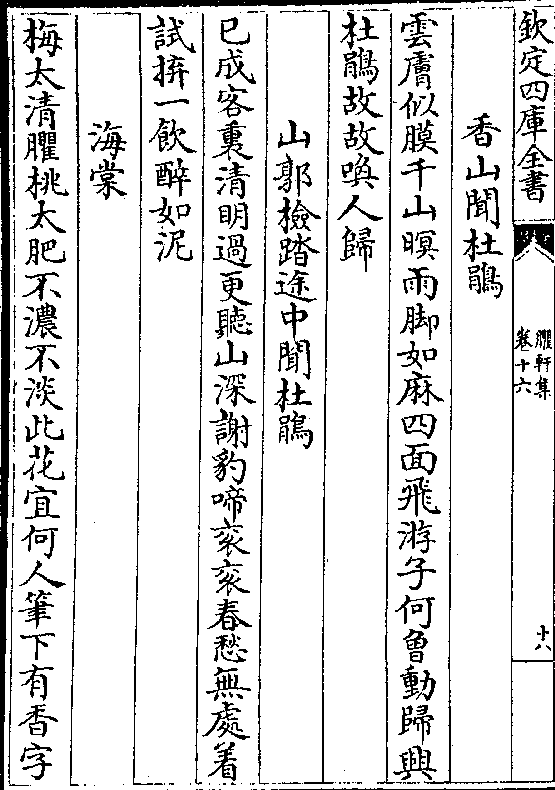 欽定四庫全書
臞軒集
卷十六
十八
香山聞杜鵑
雲膚似膜千山暝雨脚如麻四面飛游子何曾動歸興
杜鵑故故喚人歸
山郭檢踏途中聞杜鵑
已成客裏清明過更聽山深謝豹啼衮衮春愁無處着
試拚一飲醉如泥
海棠
梅太清臞桃太肥不濃不淡此花宜何人筆下有香字